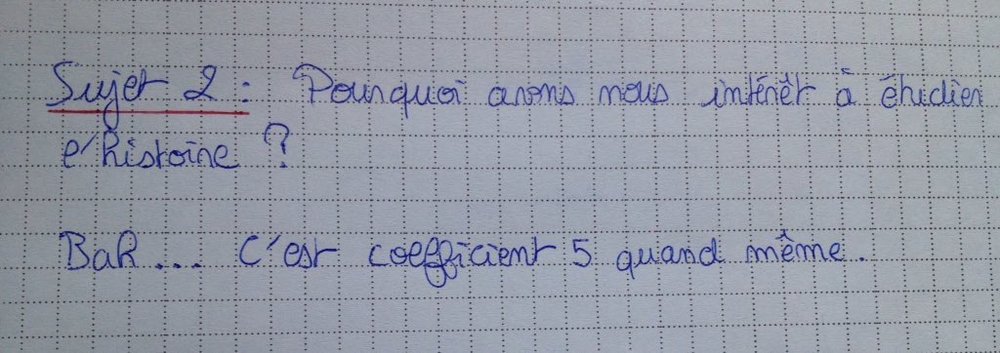 Sujet 2 : Pourquoi avons nous intérêt à étudier
l'histoire ?
Bah... C'est coefficient 5 quand même.